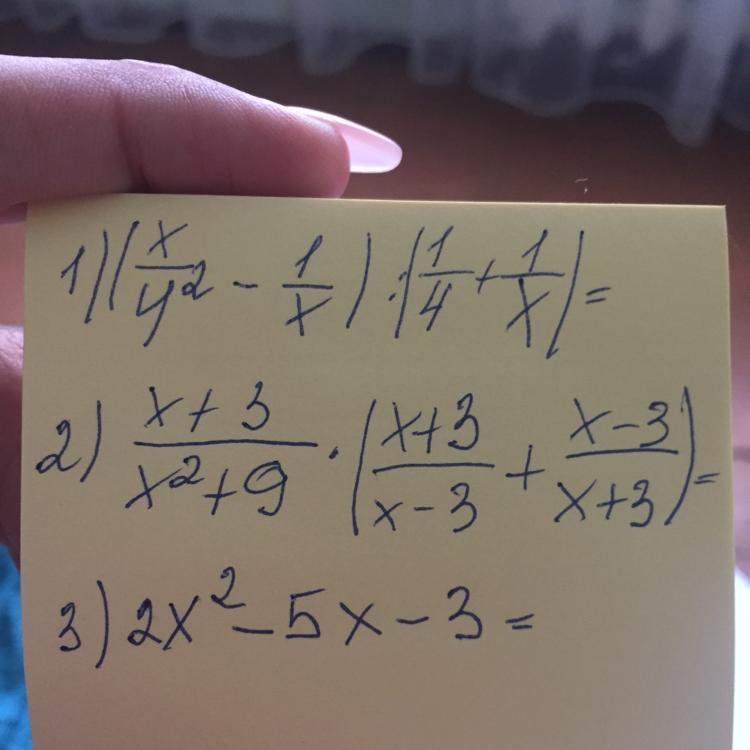 1) (x/y² - 1/x) : (1/4 + 1/x) =
2) (x+3)/(x²+9) · ((x+3)/(x-3) + (x-3)/(x+3)) =
3) 2x² - 5x - 3 =